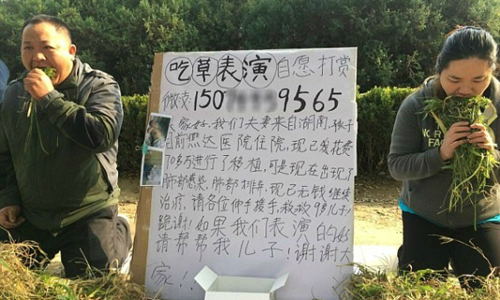 吃草表演 自愿打赏
微支150 9565
大家好，我们夫妻来自湖南，孩子
目前 医院住院，现已花费
70多万进行了移植，可是现在出现了
肺部感染，肺部排异，现已无钱继续
治疗，请各位伸手援手，救救 儿子！
跪谢！如果我们表演的好
请帮帮我儿子！谢谢大
家！！